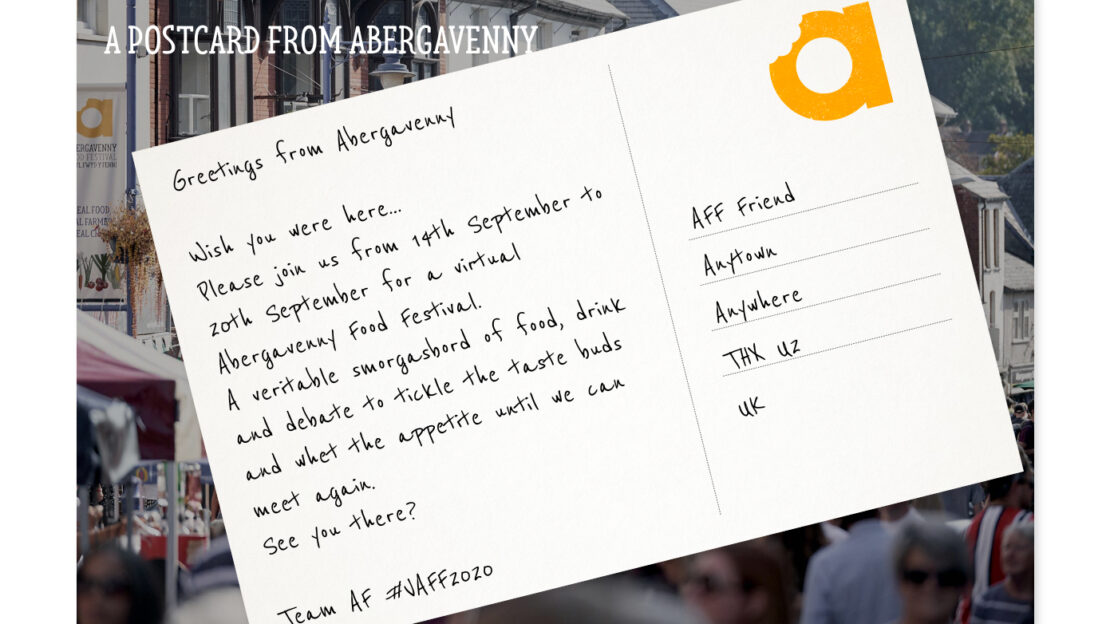 A POSTCARD FROM ABERGAVENNY
Greetings from Abergavenny
Wish you were here...
Please join us from 14th September to
20th September for a virtual
Abergavenny Food Festival.
A veritable smorgasbord of food, drink
and debate to tickle the taste buds
and whet the appetite until we can
meet again.
See you there?
Team AF #VAFF2020
AFF Friend
Anytown
Anywhere
THX U2
UK
a
BERGAVENNY